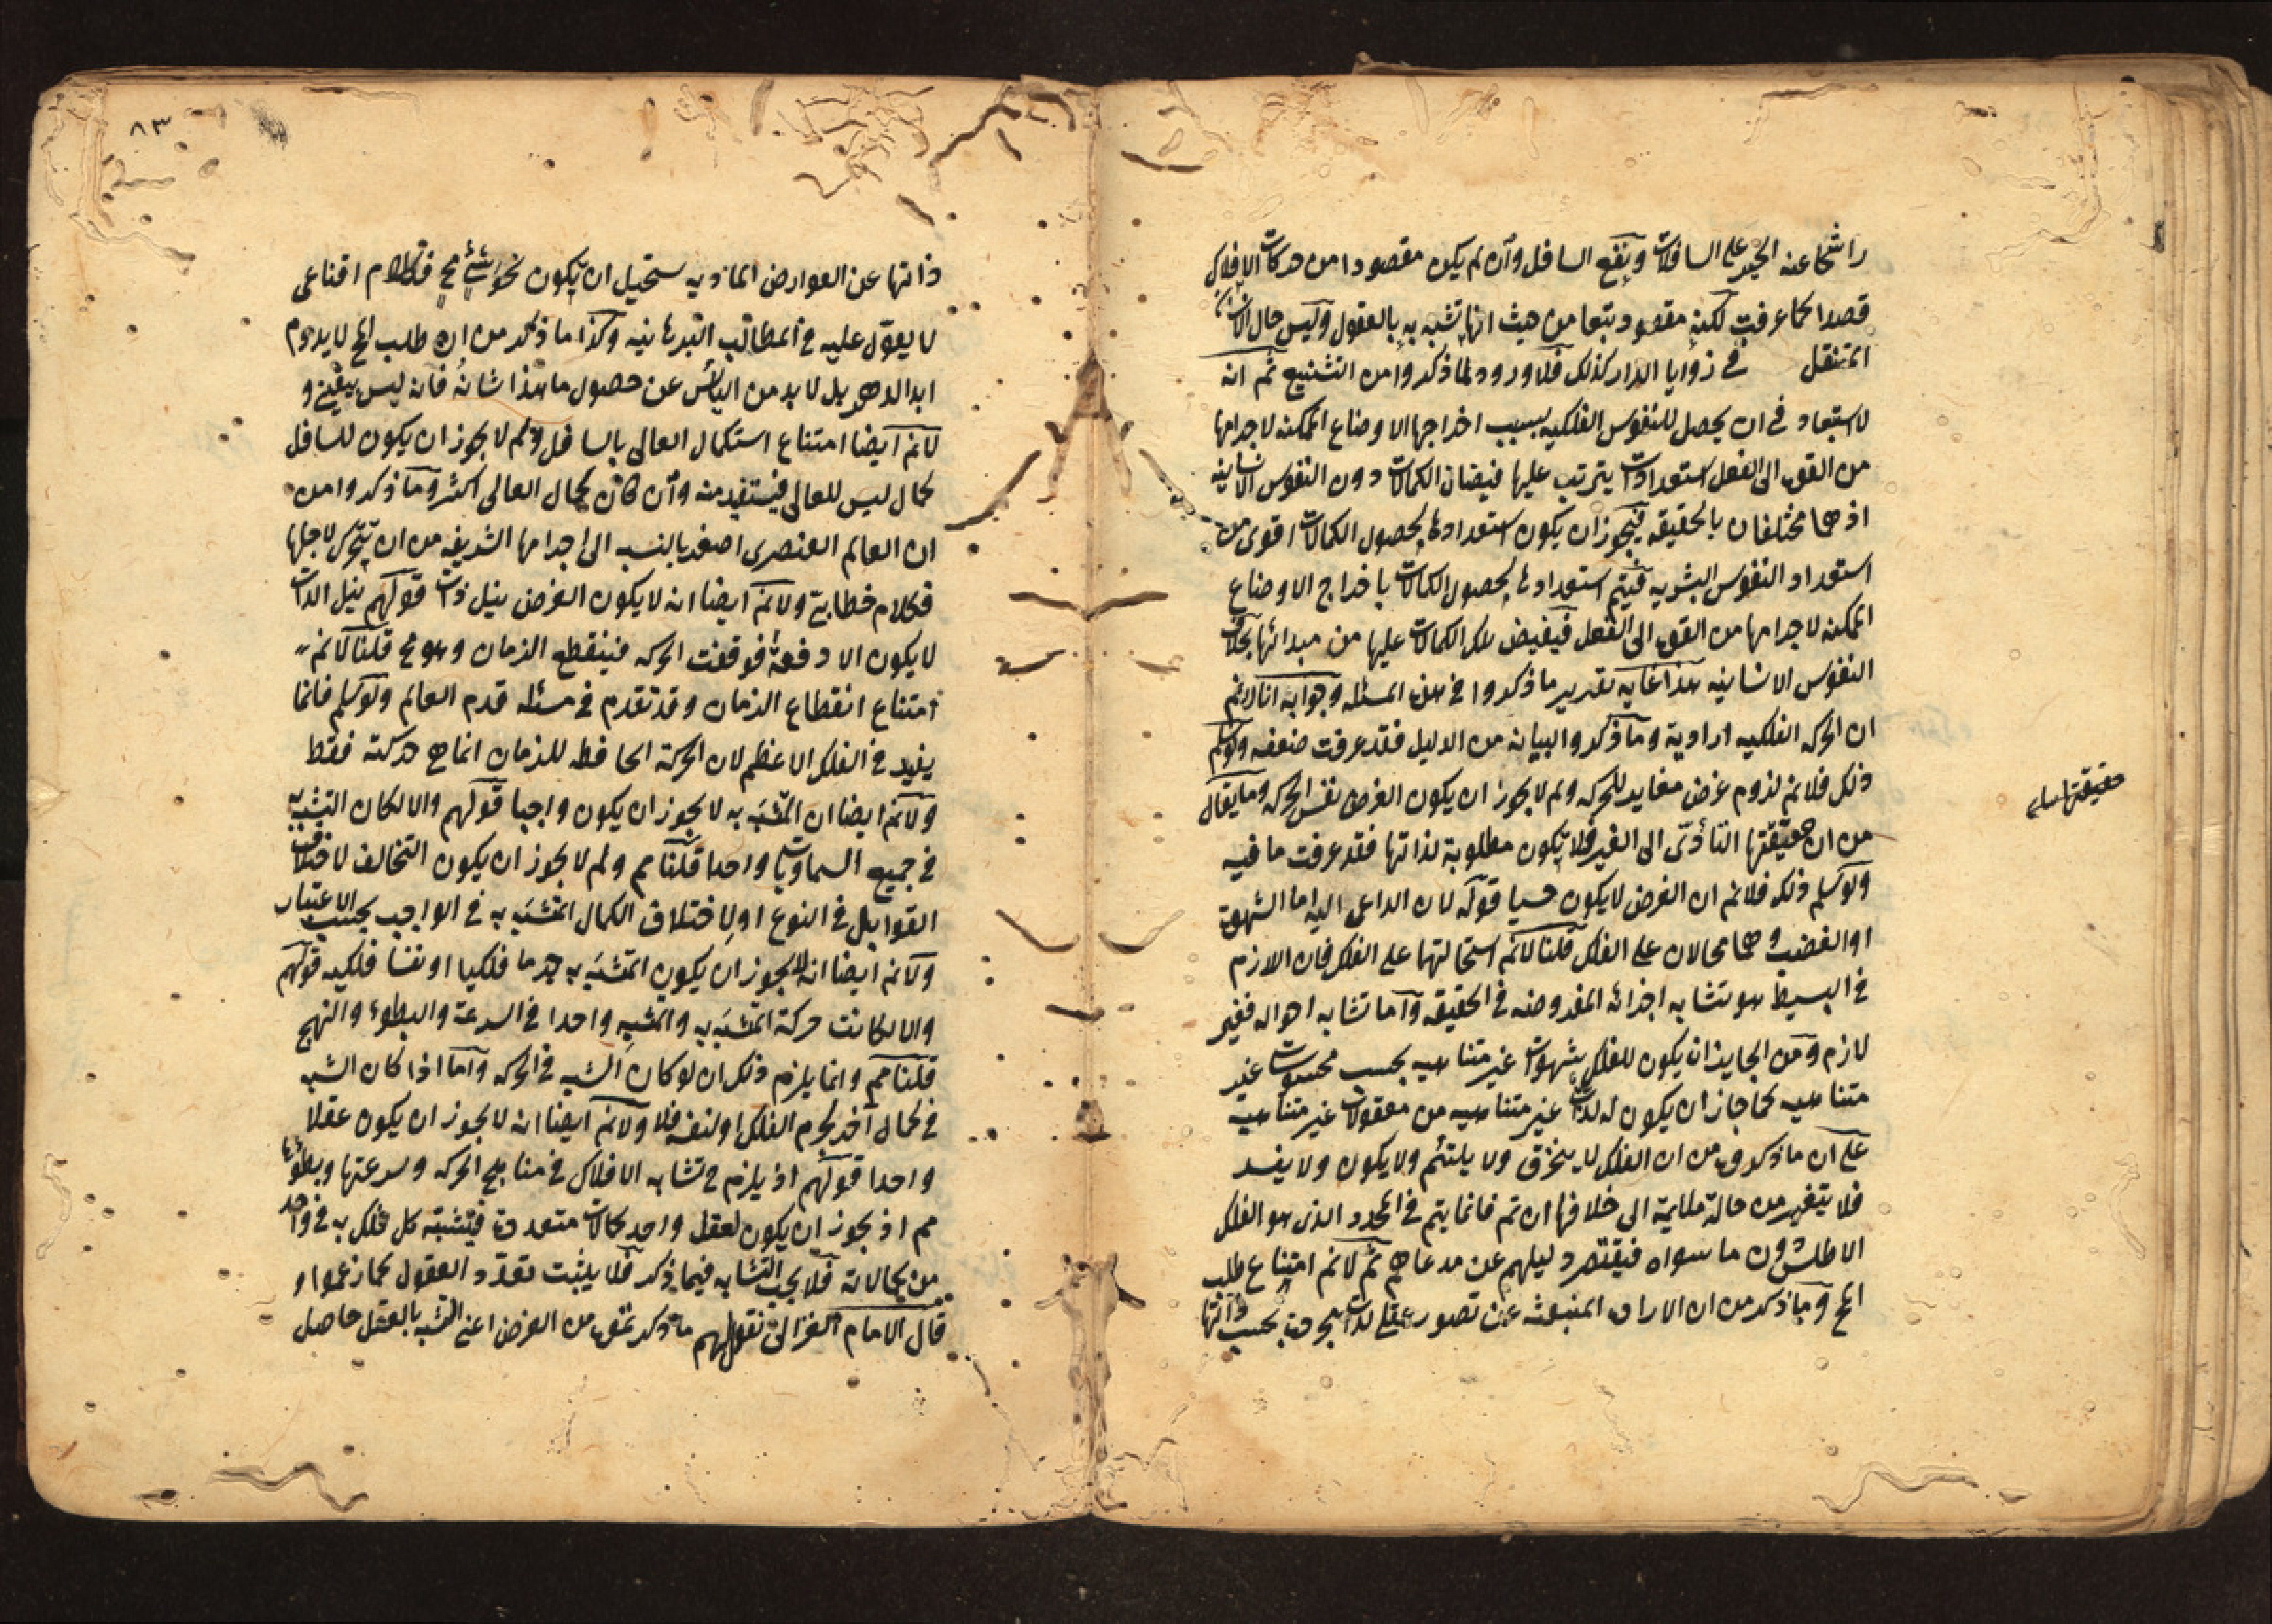 راشحا عنه الخير على السافلات وينفع السافل وان لم يكن مقصودا من حركات الافلاك
قصدا كما عرفت لكنه مقصود بتعا من حيث انها تشبه به بالعقول وليس حال الانسان
المتنقل في زوايا الدار كذلك فلا ورود لما ذكروا من التشنيع ثم انه
لا استبعاد في ان يحصل للنفوس الفلكيه بسبب اخراجها الاوضاع الممكنه لاجرامها
من القوة الى الفعل استعدادات يترتب عليها فيضان الكمالات دون النفوس الانسانيه
اذ هما مختلفان بالحقيقه فيجوز ان يكون استعدادها لحصول الكمالات اقوى من
استعداد النفوس البشريه فيتم استعدادها لحصول الكمالات باخراج الاوضاع
الممكنه لاجرامها من القوة الى الفعل فيفيض تلك الكمالات عليها من مبدائها بخلاف
النفوس الانسانيه هذا غايه تقرير ما ذكروا في هذه المسئله وجوابه انا لانم
ان الحركه الفلكيه اراديه وما ذكروا لبيانه من الدليل فقد عرفت ضعفه ولو سلم
ذلك فلانم لزوم غرض مغاير للحركه ولم لا يجوز ان يكون الغرض نفس الحركه وما يقال
من ان حقيقتها التأدّى الى الغير فلا يكون مطلوبة لذاتها فقد عرفت ما فيه
حقيقتها
ولو سلم ذلك فلانم ان الغرض لا يكون حسيا قوله لان الداعى اليه اما الشهوة
او الغضب وهما محالان على الفلك قلنا لانم استحالتهما على الفلك فان اللازم
في البسيط هو تشابه اجزائه المفروضه في الحقيقه واما تشابه احواله فغير
لازم ومن الجايز ان يكون للفلك شهوات غير متناهيه بحسب محسوسات غير
متناهيه كما جاز ان يكون له لذات غير متناهيه من معقولات غير متناهيه
على ان ما ذكروه من ان الفلك لا ينخرق ولا يلتئم ولا يكون ولا يفسد
فلا يتغير من حالة ملايمة الى خلافها ان تم فانما يتم في المحدد الذي هو الفلك
الاطلس دون ما سواه فيقتصر دليلهم عن مدعاهم ثم لانم امتناع طلب
المح وما ذكر من ان الارادة المنبعثه عن تصور عقلى لذات مجردة بحسب ذاتها
٨٣
ذاتها عن العوارض الماديه يستحيل ان يكون نحو شئ مح فكلام اقناعى
لا يعوّل عليه في المطالب البرهانيه وكذا ما ذكر من ان طلب المح لا يدوم
ابد الدهر بل لا بد من اليأس عن حصول ما هذا شانه فانه ليس بيقينى و
لانم ايضا امتناع استكمال العالى بالسافل ولم لا يجوز ان يكون للسافل
كمال ليس للعالى فيستفيد منه وان كان كمال العالى اكثر وما ذكروا من
ان العالم العنصرى اصغر بالنسبه الى اجرامها الشريفه من ان يتحرك لاجلها
فكلام خطابى ولانم ايضا انه لا يكون الغرض نيل ذات قولهم نيل الذات
لا يكون الا دفعة فوقفت الحركه فينقطع الزمان وهو مح قلنا لانم
امتناع انقطاع الزمان وقد تقدم في مسئله قدم العالم ولو سلم فانما
يفيد في الفلك الاعظم لان الحركة الحافظه للزمان انما هى حركته فقط
ولانم ايضا ان المتشبه به لا يجوز ان يكون واجبا قولهم والا لكان التشبه به
في جميع السماويات واحدا قلنا مم ولم لا يجوز ان يكون التخالف لاختلاف
القوابل في النوع او لاختلاف الكمال المتشبه به في الواجب بحسب الاعتبار
ولانم ايضا انه لا يجوز ان يكون المتشبه به جرما فلكيا او نفسا فلكيه قولهم
والا لكانت حركة المتشبه به والمتشبه واحدا في السرعة والبطوء والنهج
قلنا مم وانما يلزم ذلك ان لو كان الشبه في الحركه واما اذا كان الشبه
في كمال آخر لجرم الفلك او لنفسه فلا ولانم ايضا انه لا يجوز ان يكون عقلا
واحدا قولهم اذ يلزم ح تشابه الافلاك في مناهج الحركه وسرعتها وبطوئها
مم اذ يجوز ان يكون لعقل واحد كمالات متعددة فيتشبه كل فلك به في واحد
من كمالاته فلا يجب التشابه فيما ذكر فلا يثبت تعدّد العقول كما زعموا و
قال الامام الغزالى نقول لهم ما ذكرتموه من الغرض اعنى التشبه بالعقل حاصل